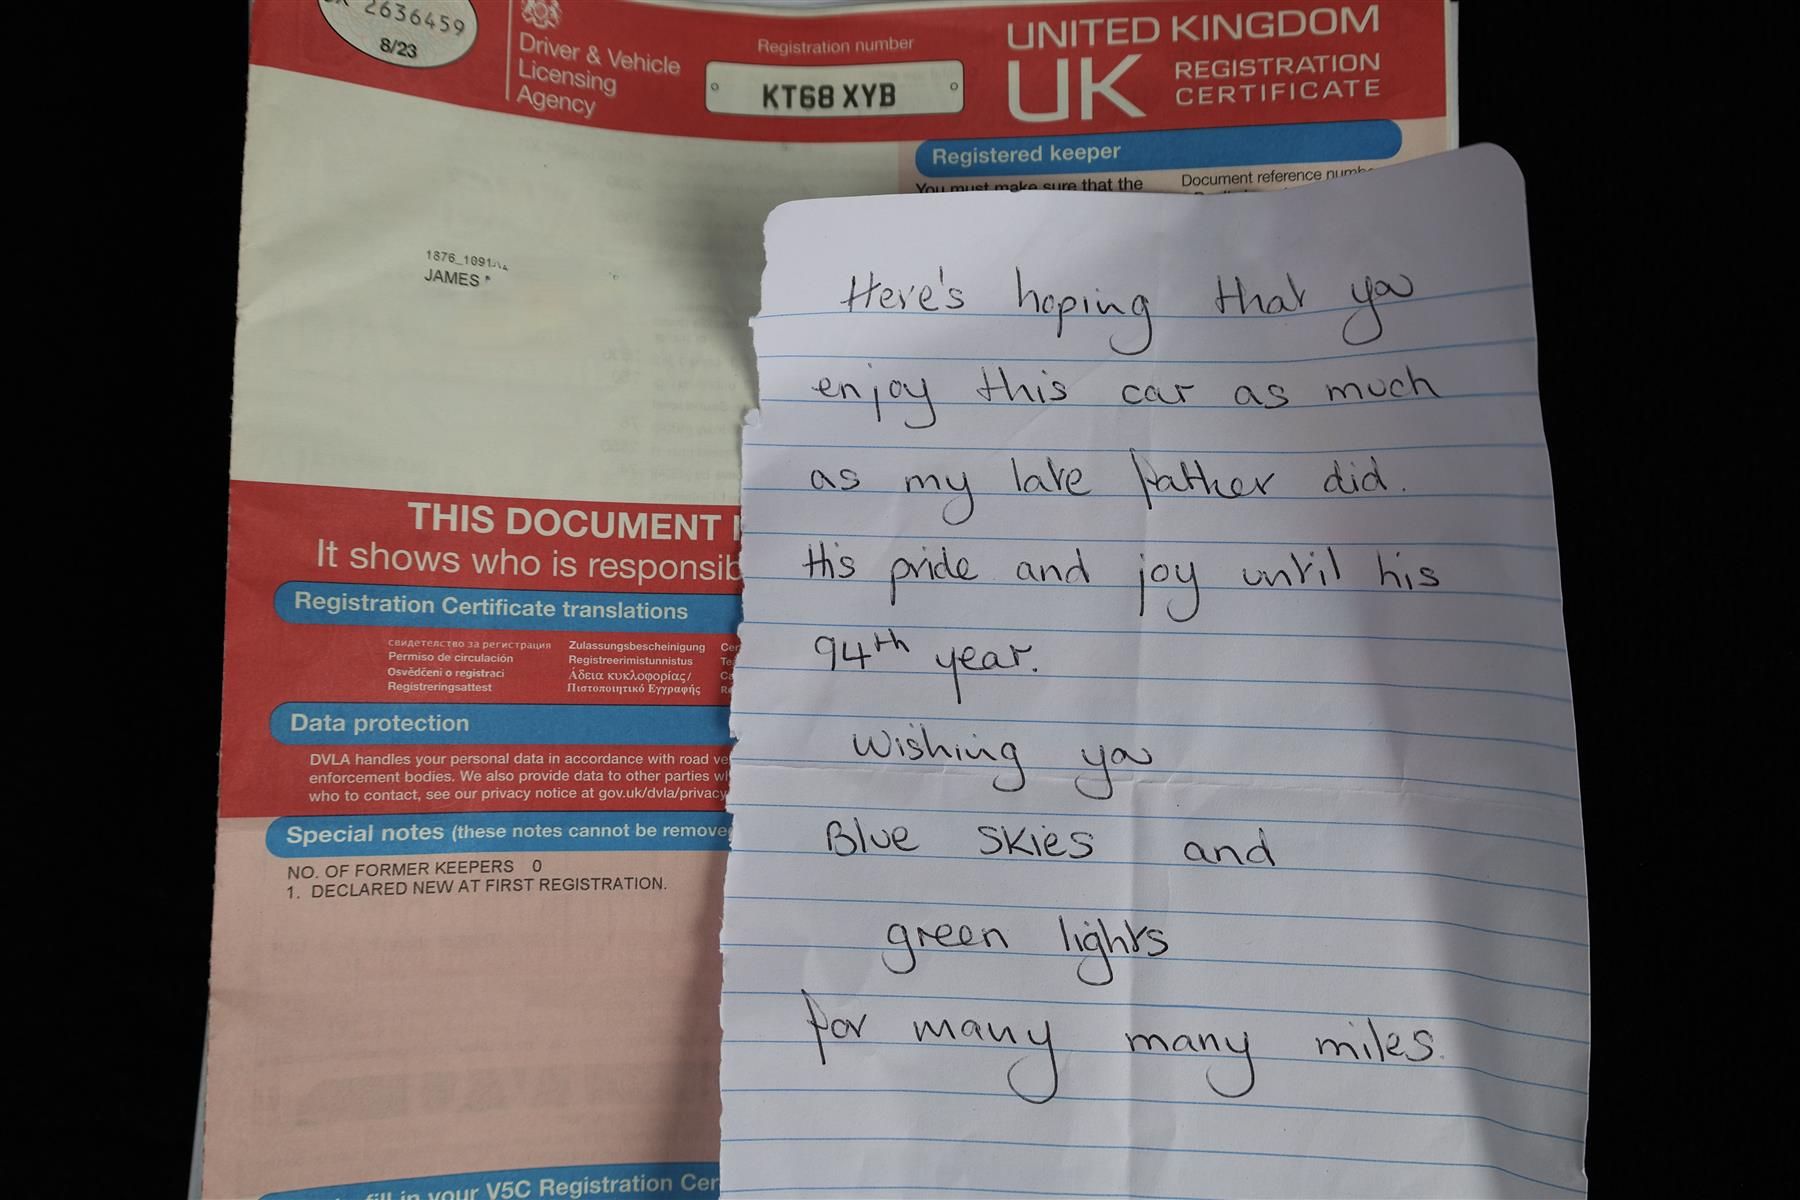 2636459
8/23
Driver & Vehicle
Licensing
Agency
Registration number
KT68 XYB
UNITED KINGDOM
UK REGISTRATION
CERTIFICATE
Registered keeper
You must make sure that the
Document reference
JAMES
THIS DOCUMENT
It shows who is
Registration Certificate translations
свидетелство за регистрация
Permiso de circulación
Osvědčení o registraci
Registreringsattest
Zulassungsbescheinigung
Registreerimistunnistus
Άδεια κυκλοφορίας/
Πιστοποιητικό Εγγραφής
Data protection
DVLA handles your personal data in accordance with road
enforcement bodies. We also provide data to other parties
who to contact, see our privacy notice at gov.uk/dvla/privacy
Special notes (these notes cannot be
NO. OF FORMER KEEPERS 0
1. DECLARED NEW AT FIRST REGISTRATION.
fill in your V5C Registration
Here's hoping that you
enjoy this car as much
as my late father did.
His pride and joy until his
94th year.
Wishing you
Blue skies and
green lights
for many many miles.